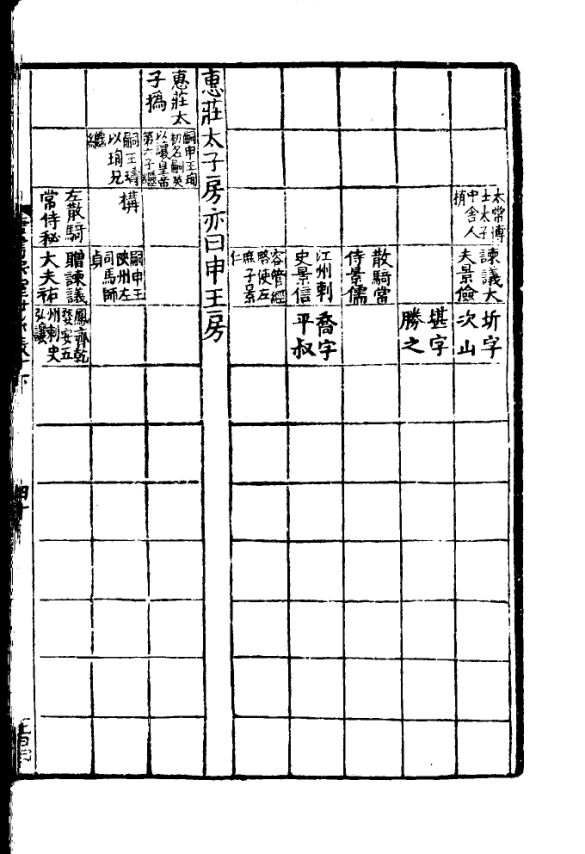 太常博
士太子
中舍人
梢
諫議大
夫景儉
圻字
次山
堪字
勝之
散騎常
侍景儒
江州刺
史景信
喬字
平叔
容管經
略使左
庶子景
仁
惠莊太子房亦曰申王房
惠莊太
子撝
嗣申王珣
初名嗣英
以讓皇帝
第六子繼
嗣王璹
以珣兄
繼
構
嗣申王
陝州左
司馬師
貞
左散騎
常侍秘
贈諫議
大夫祐
鳳齊乾
婺安五
州刺史
弘讓